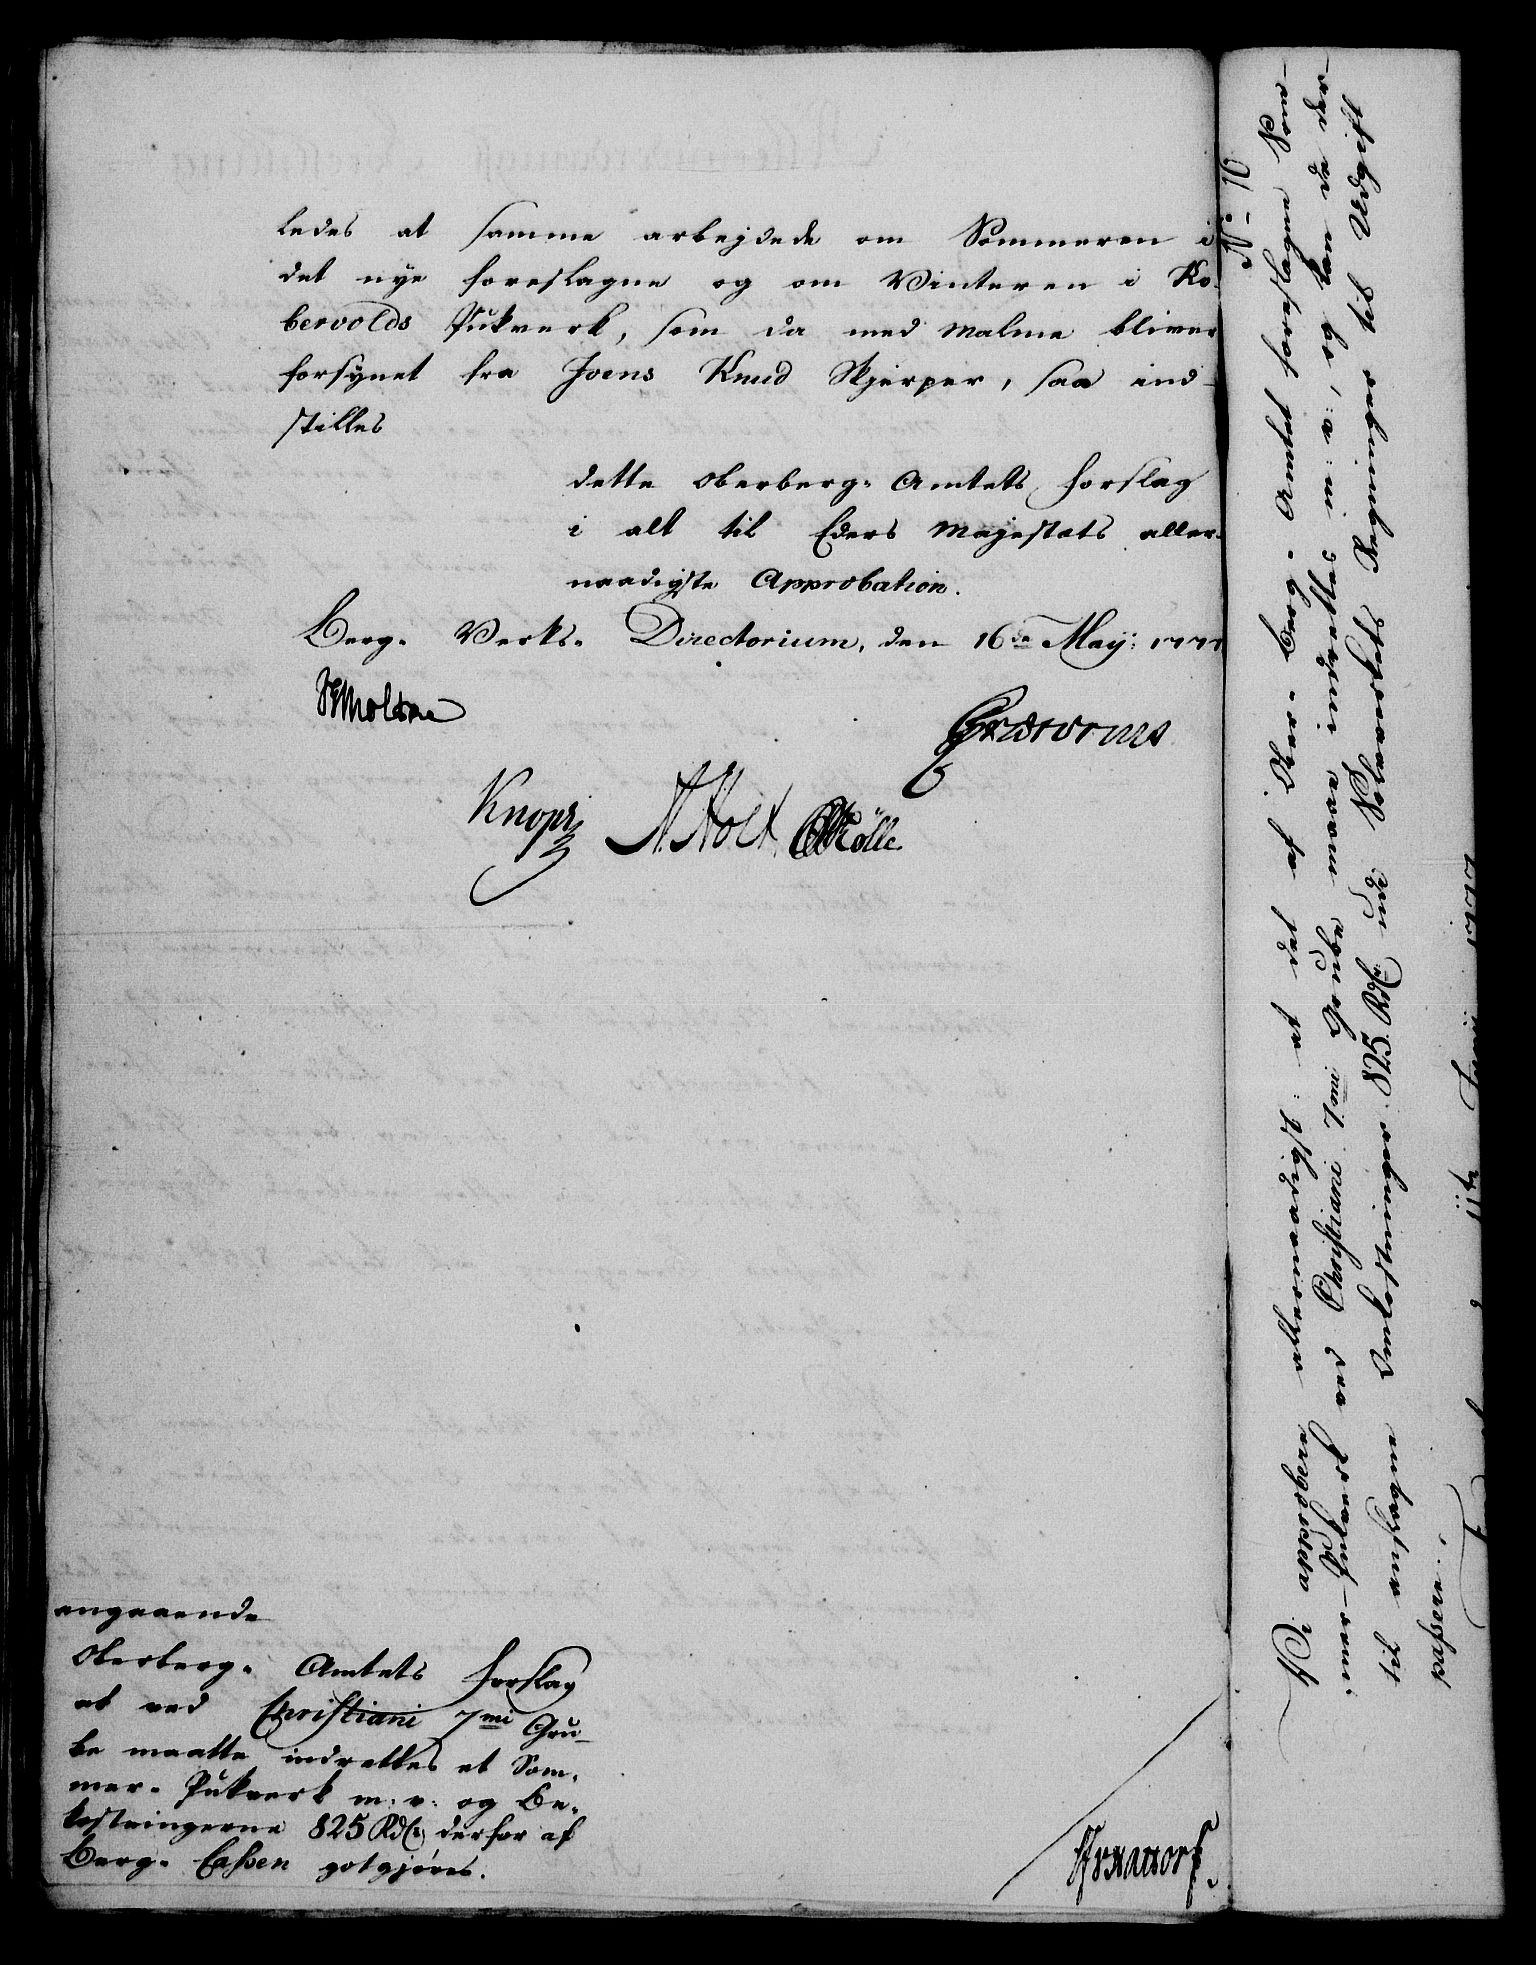 ledes at samme arbejdede om Sommeren i
det nye foreslagne og om Vinteren i Ko-
bervolds Pukverk, som da med Malme bliver
forsynet fra Joens Knud Skjerper, saa ind-
stilles
dette Oberberg-Amtets Forslag
i alt til Eders Majestæts aller-
naadigste Approbation.
Berg-Verks-Directorium, den 16de Maÿ: 1777
Knoph
Holt
angaaende
Oberberg-Amtets Forslag
at ved Christiani 7mi Gru-
be maatte indrettes et Som-
mer-Pukverk m: v: og Be-
kostningerne 825 Rdr derfor af
Berg-Cassen gotgjøres.
No 10
Vi approbere allernaadigst: at det af Ober-Berg-Amtet foreslagne Som-
mer-Pukverk ved Christiani 7mi Grube maae indrettes m: v:, og kan de der-
til anslagne Omkostninger 825 Rdr udi Sølverkets Regninger til Udgift
passere.